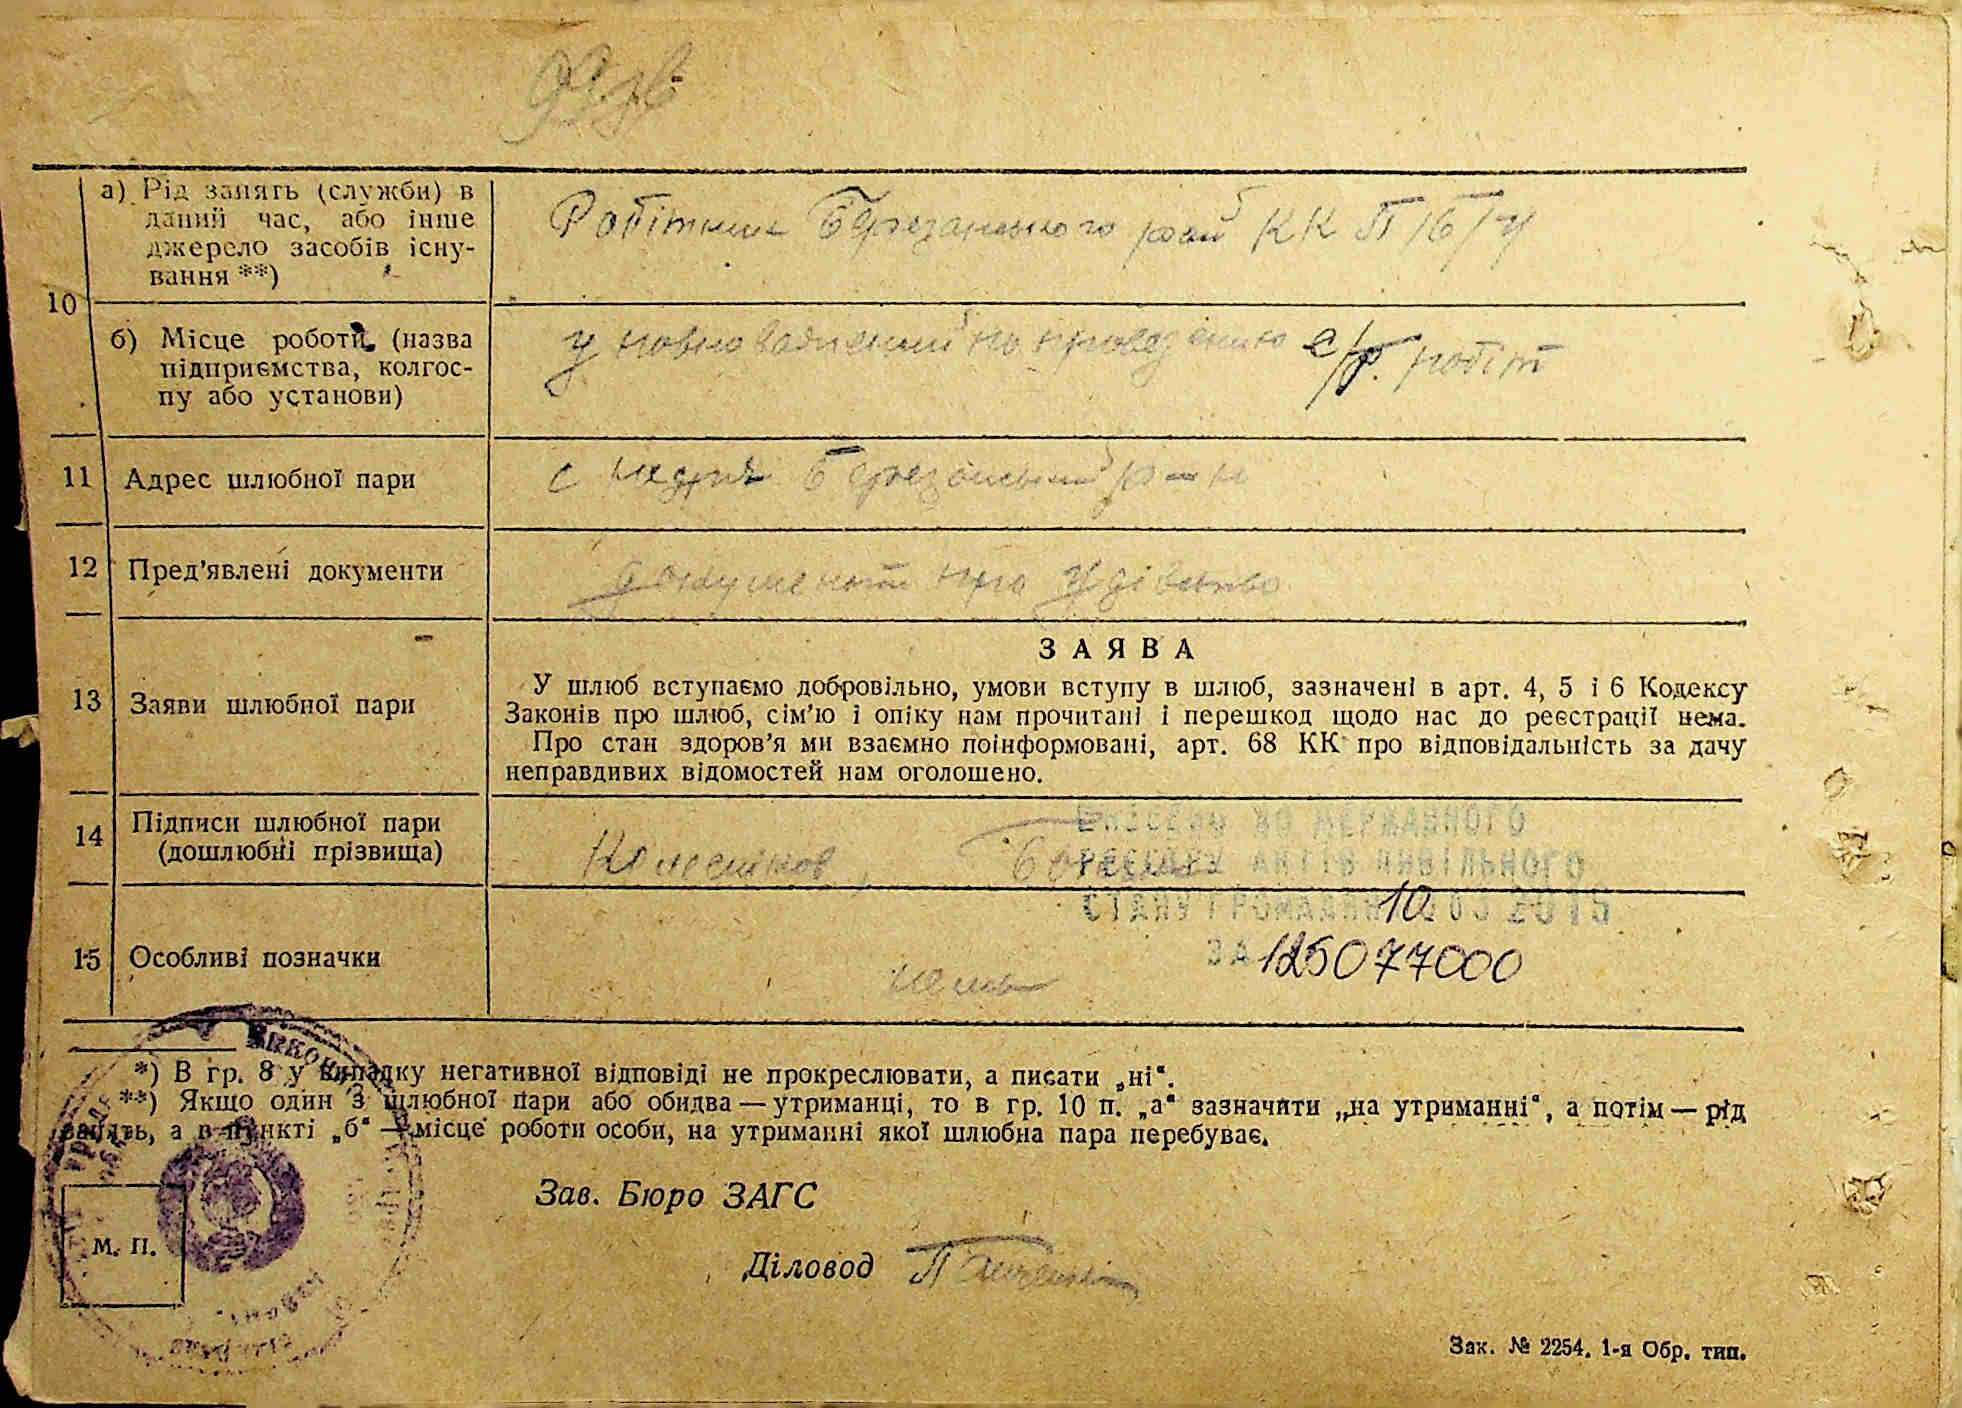 а) Рід занять (служби) в
даний час, або інше
джерело засобів існу-
вання **)
Робітник Березанського рай КК П/б/у
10
б) Місце роботи (назва
підприємства, колгос-
пу або установи)
уповноважений по проведенню с/г. робіт
11 Адрес шлюбної пари
с Недра Березанський р-н
12 Пред’явлені документи
документи про удівство
13 Заяви шлюбної пари
ЗАЯВА
У шлюб вступаємо добровільно, умови вступу в шлюб, зазначені в арт. 4, 5 і 6 Кодексу
Законів про шлюб, сім’ю і опіку нам прочитані і перешкод щодо нас до реєстрації нема.
Про стан здоров’я ми взаємно поінформовані, арт. 68 КК про відповідальність за дачу
неправдивих відомостей нам оголошено.
14 Підписи шлюбної пари
(дошлюбні прізвища)
Колесніков,
ВНЕСЕНО ДО ДЕРЖАВНОГО
РЕЄСТРУ АКТІВ ЦИВІЛЬНОГО
СТАНУ ГРОМАДЯН 10 03 2015
ЗА 125077000
15 Особливі позначки
нема
*) В гр. 8 у випадку негативної відповіді не прокреслювати, а писати „ні“.
**) Якщо один з шлюбної пари або обидва — утриманці, то в гр. 10 п. „а“ зазначити „на утриманні“, а потім — рід
занять, а в пункті „б“ — місце роботи особи, на утриманні якої шлюбна пара перебуває.
Зав. Бюро ЗАГС
М. П.
Діловод
Зак. № 2254. 1-я Обр. тип.